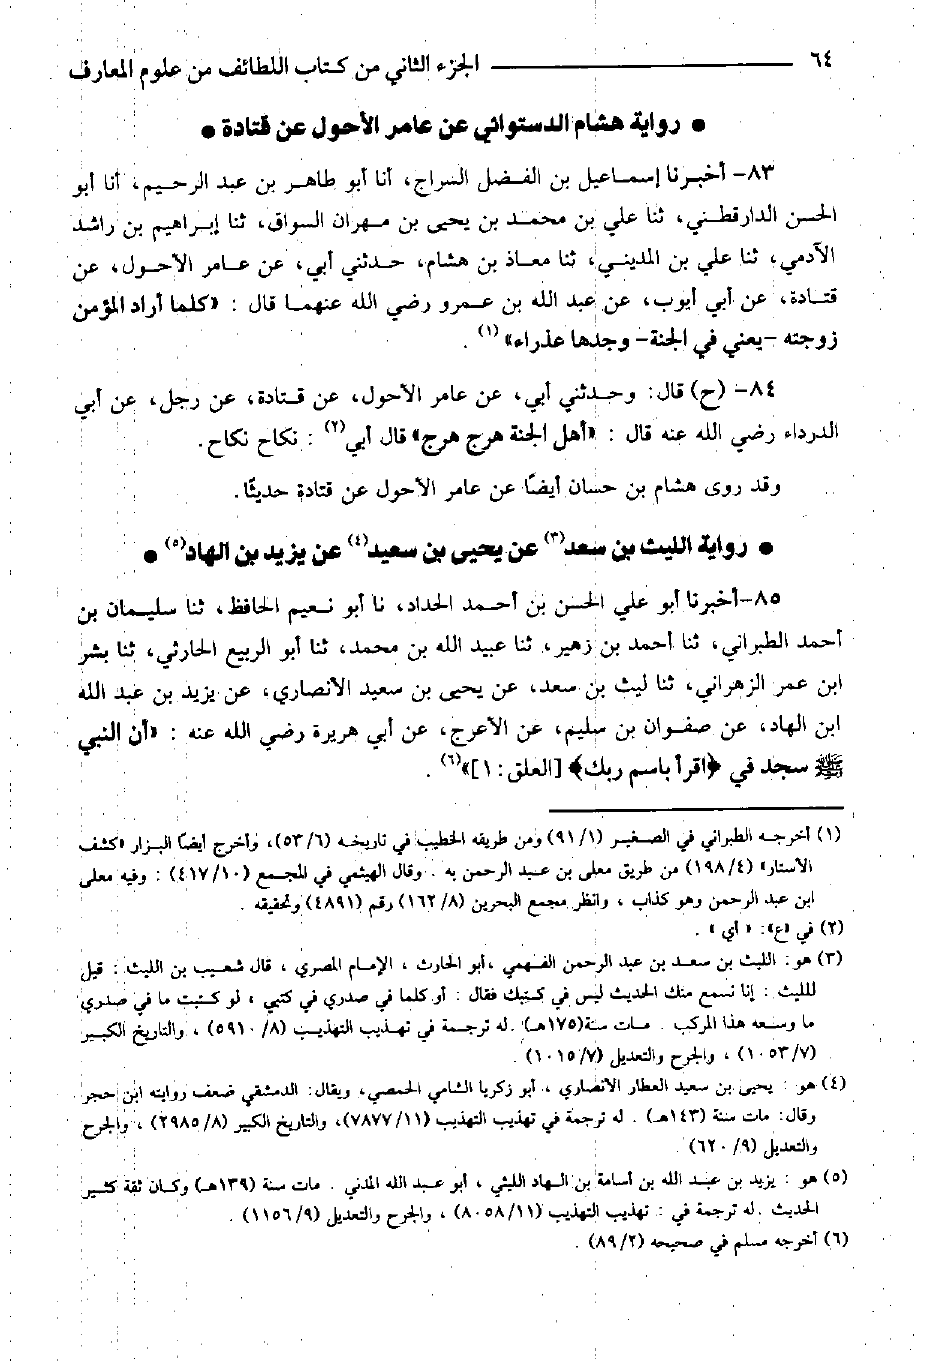 ٦٤ الجزء الثاني من كتاب اللطائف من علوم المعارف
● رواية هشام الدستوائي عن عامر الأحول عن قتادة ●
٨٣- أخبرنا إسماعيل بن الفضل السراج، أنا أبو طاهر بن عبد الرحيم، أنا أبو
الحسن الدارقطني، ثنا علي بن محمد بن يحيى بن مهران السواق، ثنا إبراهيم بن راشد
الآدمي، ثنا علي بن المديني، ثنا معاذ بن هشام، حدثني أبي، عن عامر الأحول، عن
قتادة، عن أبي أيوب، عن عبد الله بن عمرو رضي الله عنهما قال : «كلما أراد المؤمن
زوجته -يعني في الجنة- وجدها عذراء»(١) .
٨٤- (ح) قال: وحدثني أبي، عن عامر الأحول، عن قتادة، عن رجل، عن أبي
الدرداء رضي الله عنه قال : «أهل الجنة هرج هرج» قال أبي(٢) : نكاح نكاح.
وقد روى هشام بن حسان أيضًا عن عامر الأحول عن قتادة حديثًا.
● رواية الليث بن سعد(٣) عن يحيى بن سعيد(٤) عن يزيد بن الهاد(٥) ●
٨٥-أخبرنا أبو علي الحسن بن أحمد الحداد، نا أبو نعيم الحافظ، ثنا سليمان بن
أحمد الطبراني، ثنا أحمد بن زهير، ثنا عبيد الله بن محمد، ثنا أبو الربيع الحارثي، ثنا بشر
ابن عمر الزهراني، ثنا ليث بن سعد، عن يحيى بن سعيد الأنصاري، عن يزيد بن عبد الله
ابن الهاد، عن صفوان بن سليم، عن الأعرج، عن أبي هريرة رضي الله عنه : «أن النبي
ﷺ سجد في ﴿اقرأ باسم ربك﴾ [العلق: ١]»(٦) .
(١) أخرجه الطبراني في الصغير (٩١/١) ومن طريقه الخطيب في تاريخه (٥٣/٦)، وأخرج أيضًا البزار «كشف
الأستار» (١٩٨/٤) من طريق معلى بن عبد الرحمن به . وقال الهيثمي في المجمع (٤١٧/١٠) : وفيه معلى
ابن عبد الرحمن وهو كذاب ، وانظر مجمع البحرين (١٦٢/٨) رقم (٤٨٩١) وتحقيقه .
(٢) في «ع»: « أي » .
(٣) هو: الليث بن سعد بن عبد الرحمن الفهمي ،أبو الحارث ، الإمام المصري ، قال شعيب بن الليث : قيل
لليث : إنا نسمع منك الحديث ليس في كتبك فقال : أو كلما في صدري في كتبي ، لو كتبت ما في صدري
ما وسعه هذا المركب . مات سنة(١٧٥هـ) .له ترجمة في تهذيب التهذيب (٥٩١٠/٨) ، والتاريخ الكبير
(١٠٥٣/٧) ، والجرح والتعديل (١٠١٥/٧) .
(٤) هو : يحيى بن سعيد العطار الأنصاري ، أبو زكريا الشامي الحمصي، ويقال: الدمشقي ضعف روايته ابن حجر
وقال: مات سنة (١٤٣هـ) . له ترجمة في تهذيب التهذيب (٧٨٧٧/١١)، والتاريخ الكبير (٢٩٨٥/٨) ، والجرح
والتعديل (٦٢٠/٩) .
(٥) هو : يزيد بن عبد الله بن أسامة بن الهاد الليثي ، أبو عبد الله المدني . مات سنة (١٣٩هـ) وكان ثقة كثير
الحديث .له ترجمة في : تهذيب التهذيب (٨٠٥٨/١١) ، والجرح والتعديل (١١٥٦/٩) .
(٦) أخرجه مسلم في صحيحه (٨٩/٢) .